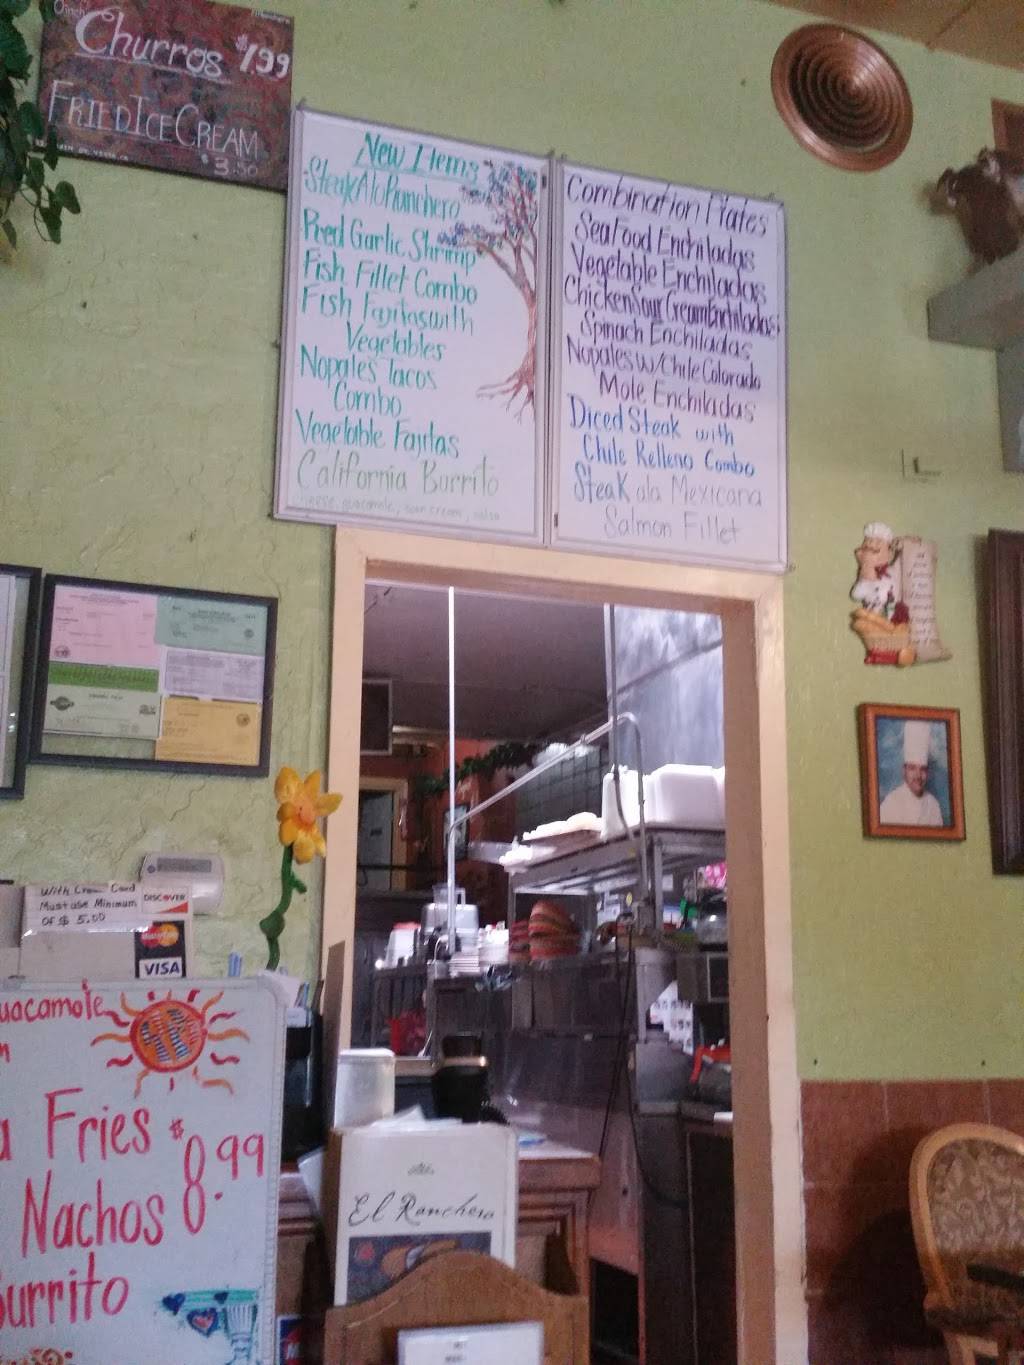 Churros $1.99
FRIED ICE CREAM
$3.50
New Items
Steak Alo Ranchero
Peed Garlic Shrimp
Fish Fillet Combo
Fish Fajitas with
Vegetables
Nopales Tacos
Combo
Vegetable Fajitas
California Burrito
cheese, guacamole, sour cream, salsa
Combination Plates
Sea Food Enchiladas
Vegetable Enchiladas
Chicken Sour Cream Enchiladas
Spinach Enchiladas
Nopales W/Chile Colorado
Mole Enchiladas
Diced Steak with
Chile Relleno Combo
Steak ala Mexicana
Salmon Fillet
With Credit Card
Must use Minimum
OF $ 5.00
DISCOVER
MasterCard
VISA
uacamole
Fries $8.99
Nachos
urrito
El Ranchero